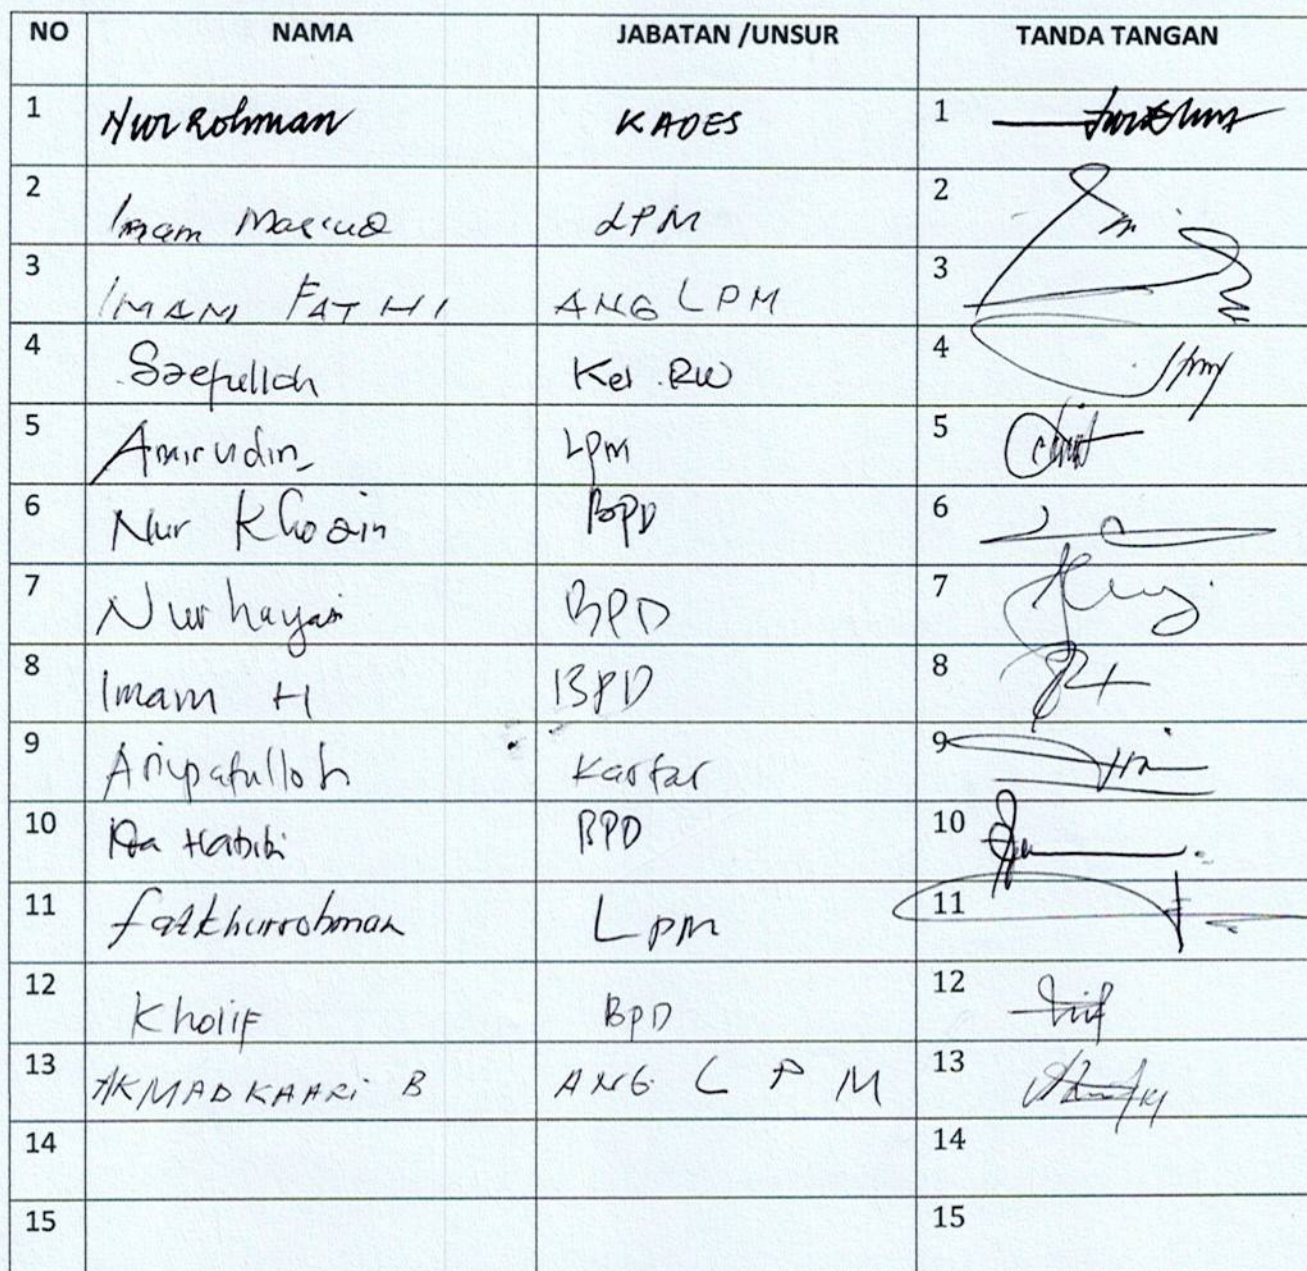 NO NAMA JABATAN /UNSUR TANDA TANGAN
1 Nur Rohman KADES 1
2 Imam Mascud LPM 2
3 IMAM FATHI ANG LPM 3
4 Saefulloh Ket. RW 4
5 Amirudin LPM 5
6 Nur Khozin BPD 6
7 Nurhayati BPD 7
8 Imam H BPD 8
9 Kartar 9
10 Habibi BPD 10
11 fatkhurrohman LPM 11
12 Kholif BPD 12
13 AKMAD B ANG LPM 13
14 14
15 15